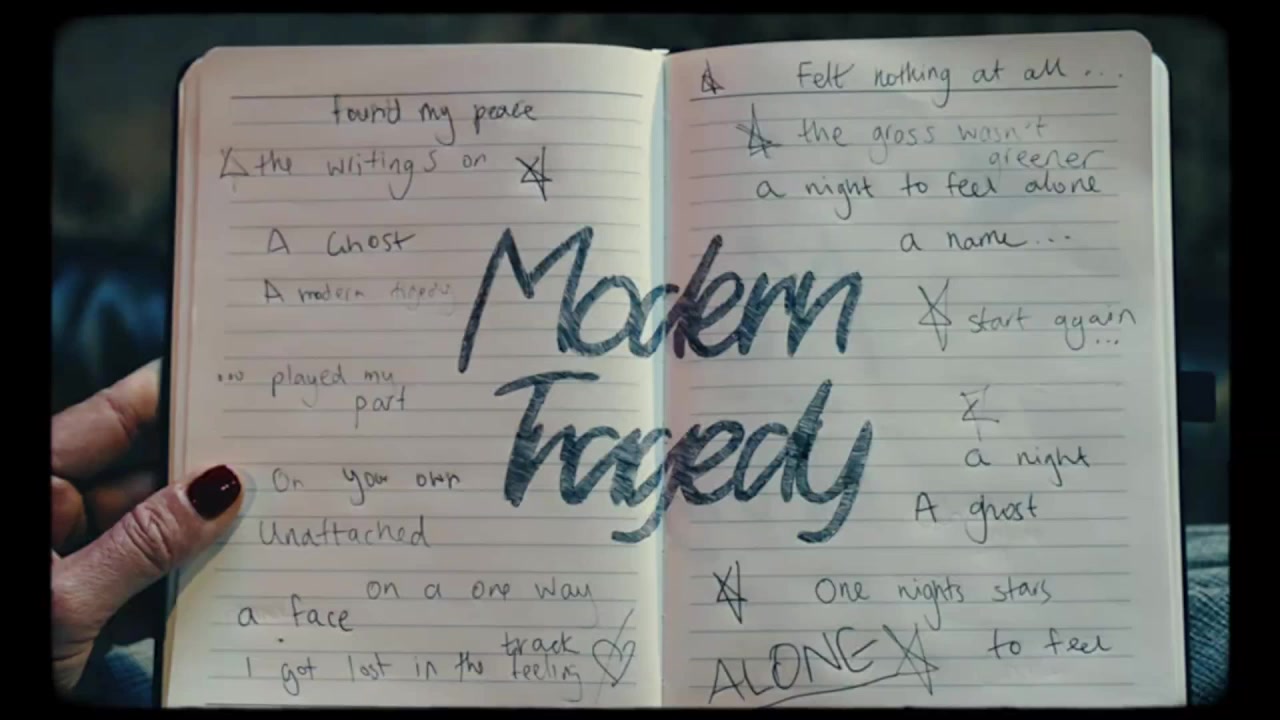 found my peace
the writings on
A Ghost
A modern tragedy
... played my
part
On your own
Unattached
on a one way
a face
track
I got lost in the feeling
Modern
Tragedy
Felt nothing at all ...
the grass wasn't
greener
a night to feel alone
a name...
start again
...
a night
A ghost
One nights stars
to feel
ALONE